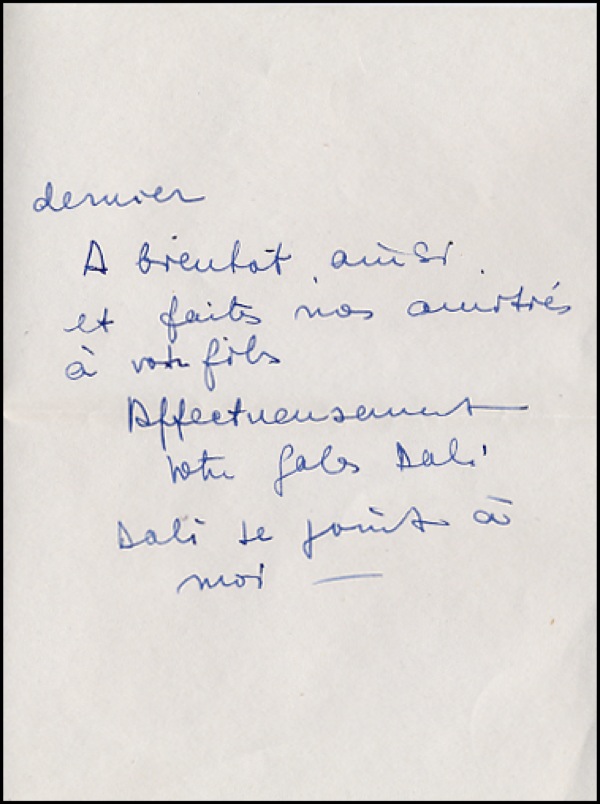 dernier
A bientot ainsi
et faites nos amitiés
à votre fils
Affectueusement
votre Gala Dali
Dali se joint à
moi —